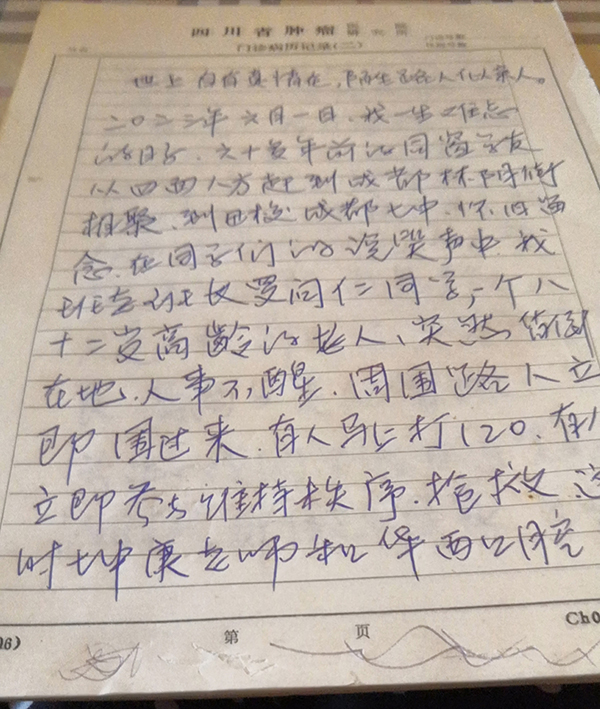 四川省肿瘤医院研究所
门诊病历记录(二)
世上自有真情在,陌生路人化亲人。
二〇二三年六月一日,我一生难忘
的日子,六十多年前的同窗学友
从四面八方赶到成都林荫街
相聚,到母校成都七中,怀旧留
念,在同学们的说笑声中,我
班老班长罗问仁同学,一个八
十二岁高龄的老人,突然倒
在地,人事不醒,周围路人立
即围过来,有人马上打120,有人
立即参与维持秩序,抢救,这
时七中康老师和华西口腔
06)
第 页
Ch0